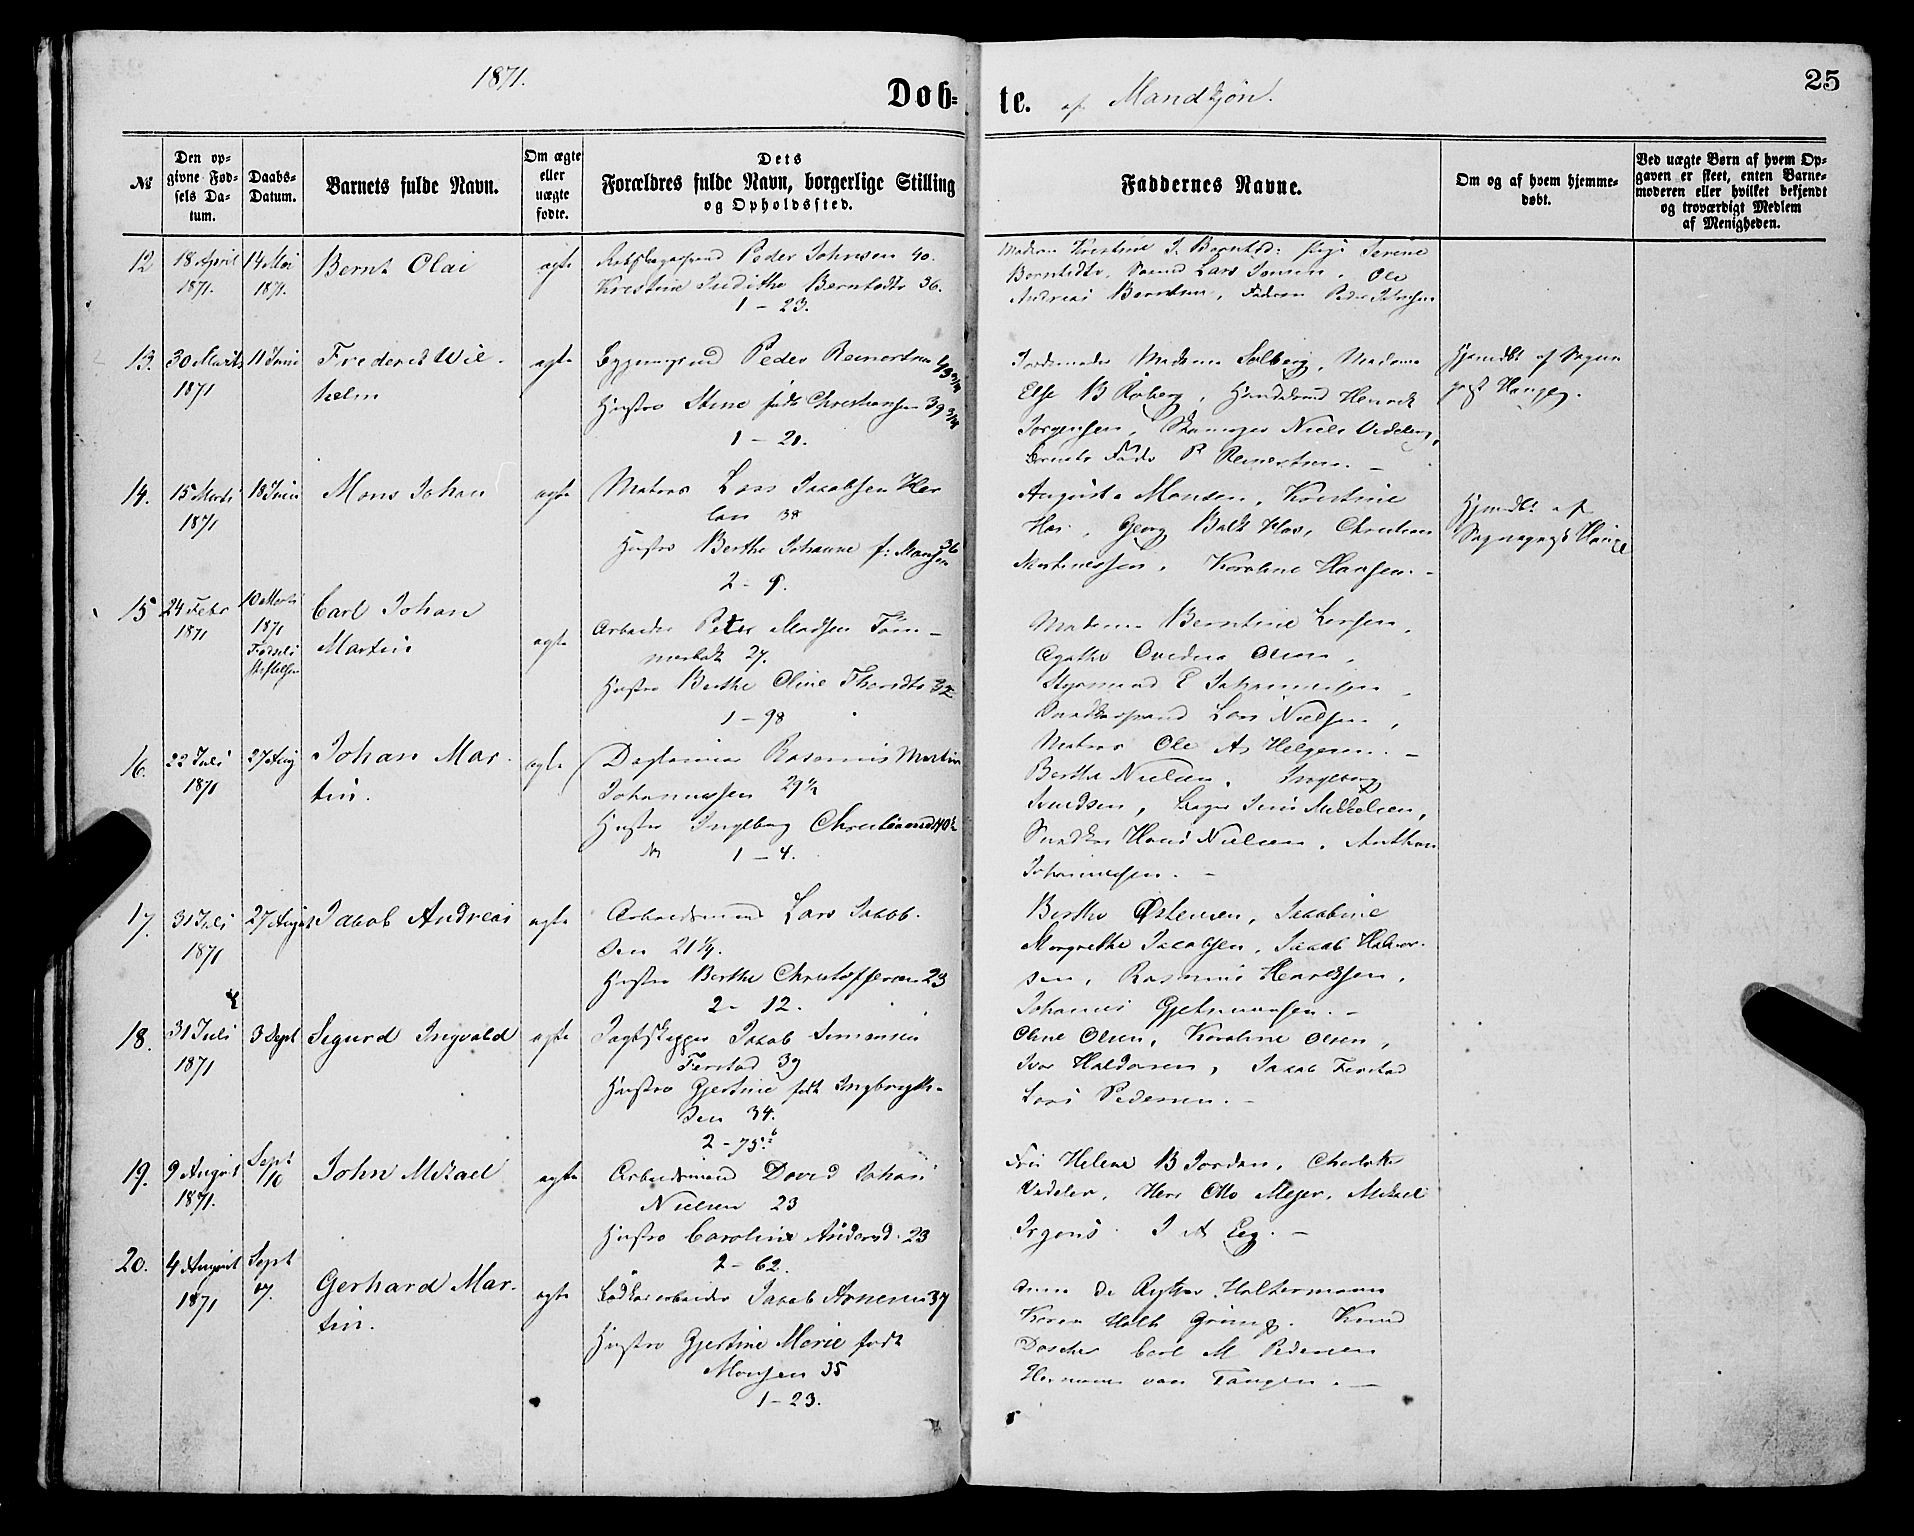 1871.
Døb=
te. af Mandkjøn.
25
№
Den op=
givne Fød=
sels Da=
tum.
Daabs=
Datum.
Barnets fulde Navn.
Om ægte
eller
uægte
fødte.
Dets
Forældres fulde Navn, borgerlige Stilling
og Opholdssted.
Faddernes Navne.
Om og af hvem hjemme=
døbt.
Ved uægte Børn af hvem Op=
gaven er skeet, enten Barne=
moderen eller hvilket bekjendt
og troværdigt Medlem
af Menigheden.
12
18 April
1871.
14 Mai
1871.
Bernt Olai
ægte
Peder Johnsen 40.
Kristine Judithe Berntsdtr 36.
1 - 23.
Madam Kristine J. Berntsd: pige Serine
Berntsdtr, Lars Jonsen, Ole
Andreas Berntsen, Faderen Peder Johnsen
13.
30 Marts
1871
11 Juni
Frederik Wil-
helm
ægte
Peder Reinertsen
Hustro Stine født Christiansen 39
1 - 21.
Jordemoder Madame Solberg, Madame
Else B Roberg, Henrik
Jørgensen, Niels Vedeler,
Barnets Fader P Reinertsen. -
Hjemdbt af Sogne
prest Hauge.
14.
15 Marts
1871
18 Juni
Mons Johan
ægte
Matros Lars Jacobsen
38
Hustro Berthe Johanne f: Monsen 36
2 - 9.
Augusta Monsen, Kristine
Georg Balk Christian
Martinessen, Karoline Hansen. -
Hjemdbt af
Sogneprest Hauge
15
24 Febr
1871
10 Marts
1871
Fødsels
stiftelsen
Carl Johan
Martin
ægte
Arbeider Peter Madsen
27.
Hustro Berthe Oline 32
1 - 98
Madame Berntine Larsen,
Agathe Olsen,
Styrmand E Johannessen,
Lars Nielsen,
Matros Ole A Helgesen. -
16.
22 Juli
1871
27 Aug
Johan Mar-
tin.
ægte
Daglønner Rasmus Martin
Johannessen 29 1/2
Hustro Ingeborg
1 - 4.
Berthe Nielsen, Ingeborg
Knudsen, Jens Mikkelsen,
Snedker Hans Nielsen, Anthon
Johannessen. -
17.
31 Juli
1871
27 August
Jacob Andreas
ægte
Arbeidsmand Lars Jacob-
sen 21 1/4.
Hustro Berthe Christoffersen 23
2 - 12.
Berthe Østensen, Jacobine
Margrethe Jacobsen, Jacob Halvor-
sen, Rasmus Henriksen,
Johannes Gjertmundsen. -
18.
31 Juli
1871
3 Sept
Sigurd Ingvald
ægte
Jagtskipper Jacob Simonsen
Ferstad 39
Hustro Gjertine født Ingebrigt-
sen 34.
2 - 75 b
Oline Olsen, Karoline Olsen,
Iver Haldorsen, Jacob Ferstad
Lars Pedersen. -
19.
9 August
1871.
Sept
1/10
John Mikael
ægte
Arbeidsmand David Johan
Nielsen 23
Hustro Caroline Andersd. 23
2 - 62.
Fru Helene B Jordan, Charlotte
Vedeler, Herr Otto Meyer, Mikael
Irgens. J A Eeg. -
20.
4 August
1871
Sept
17.
Gerhard Mar-
tin.
ægte
Bødkerarbeider Jacob Arnesen 37
Hustro Gjertine Marie født
Monsen 35
1 - 23.
Anna de Rytter Holtermann
Karen Holtz Grüning. Knud
Carl M Pedersen
Hermann van Tangen. -